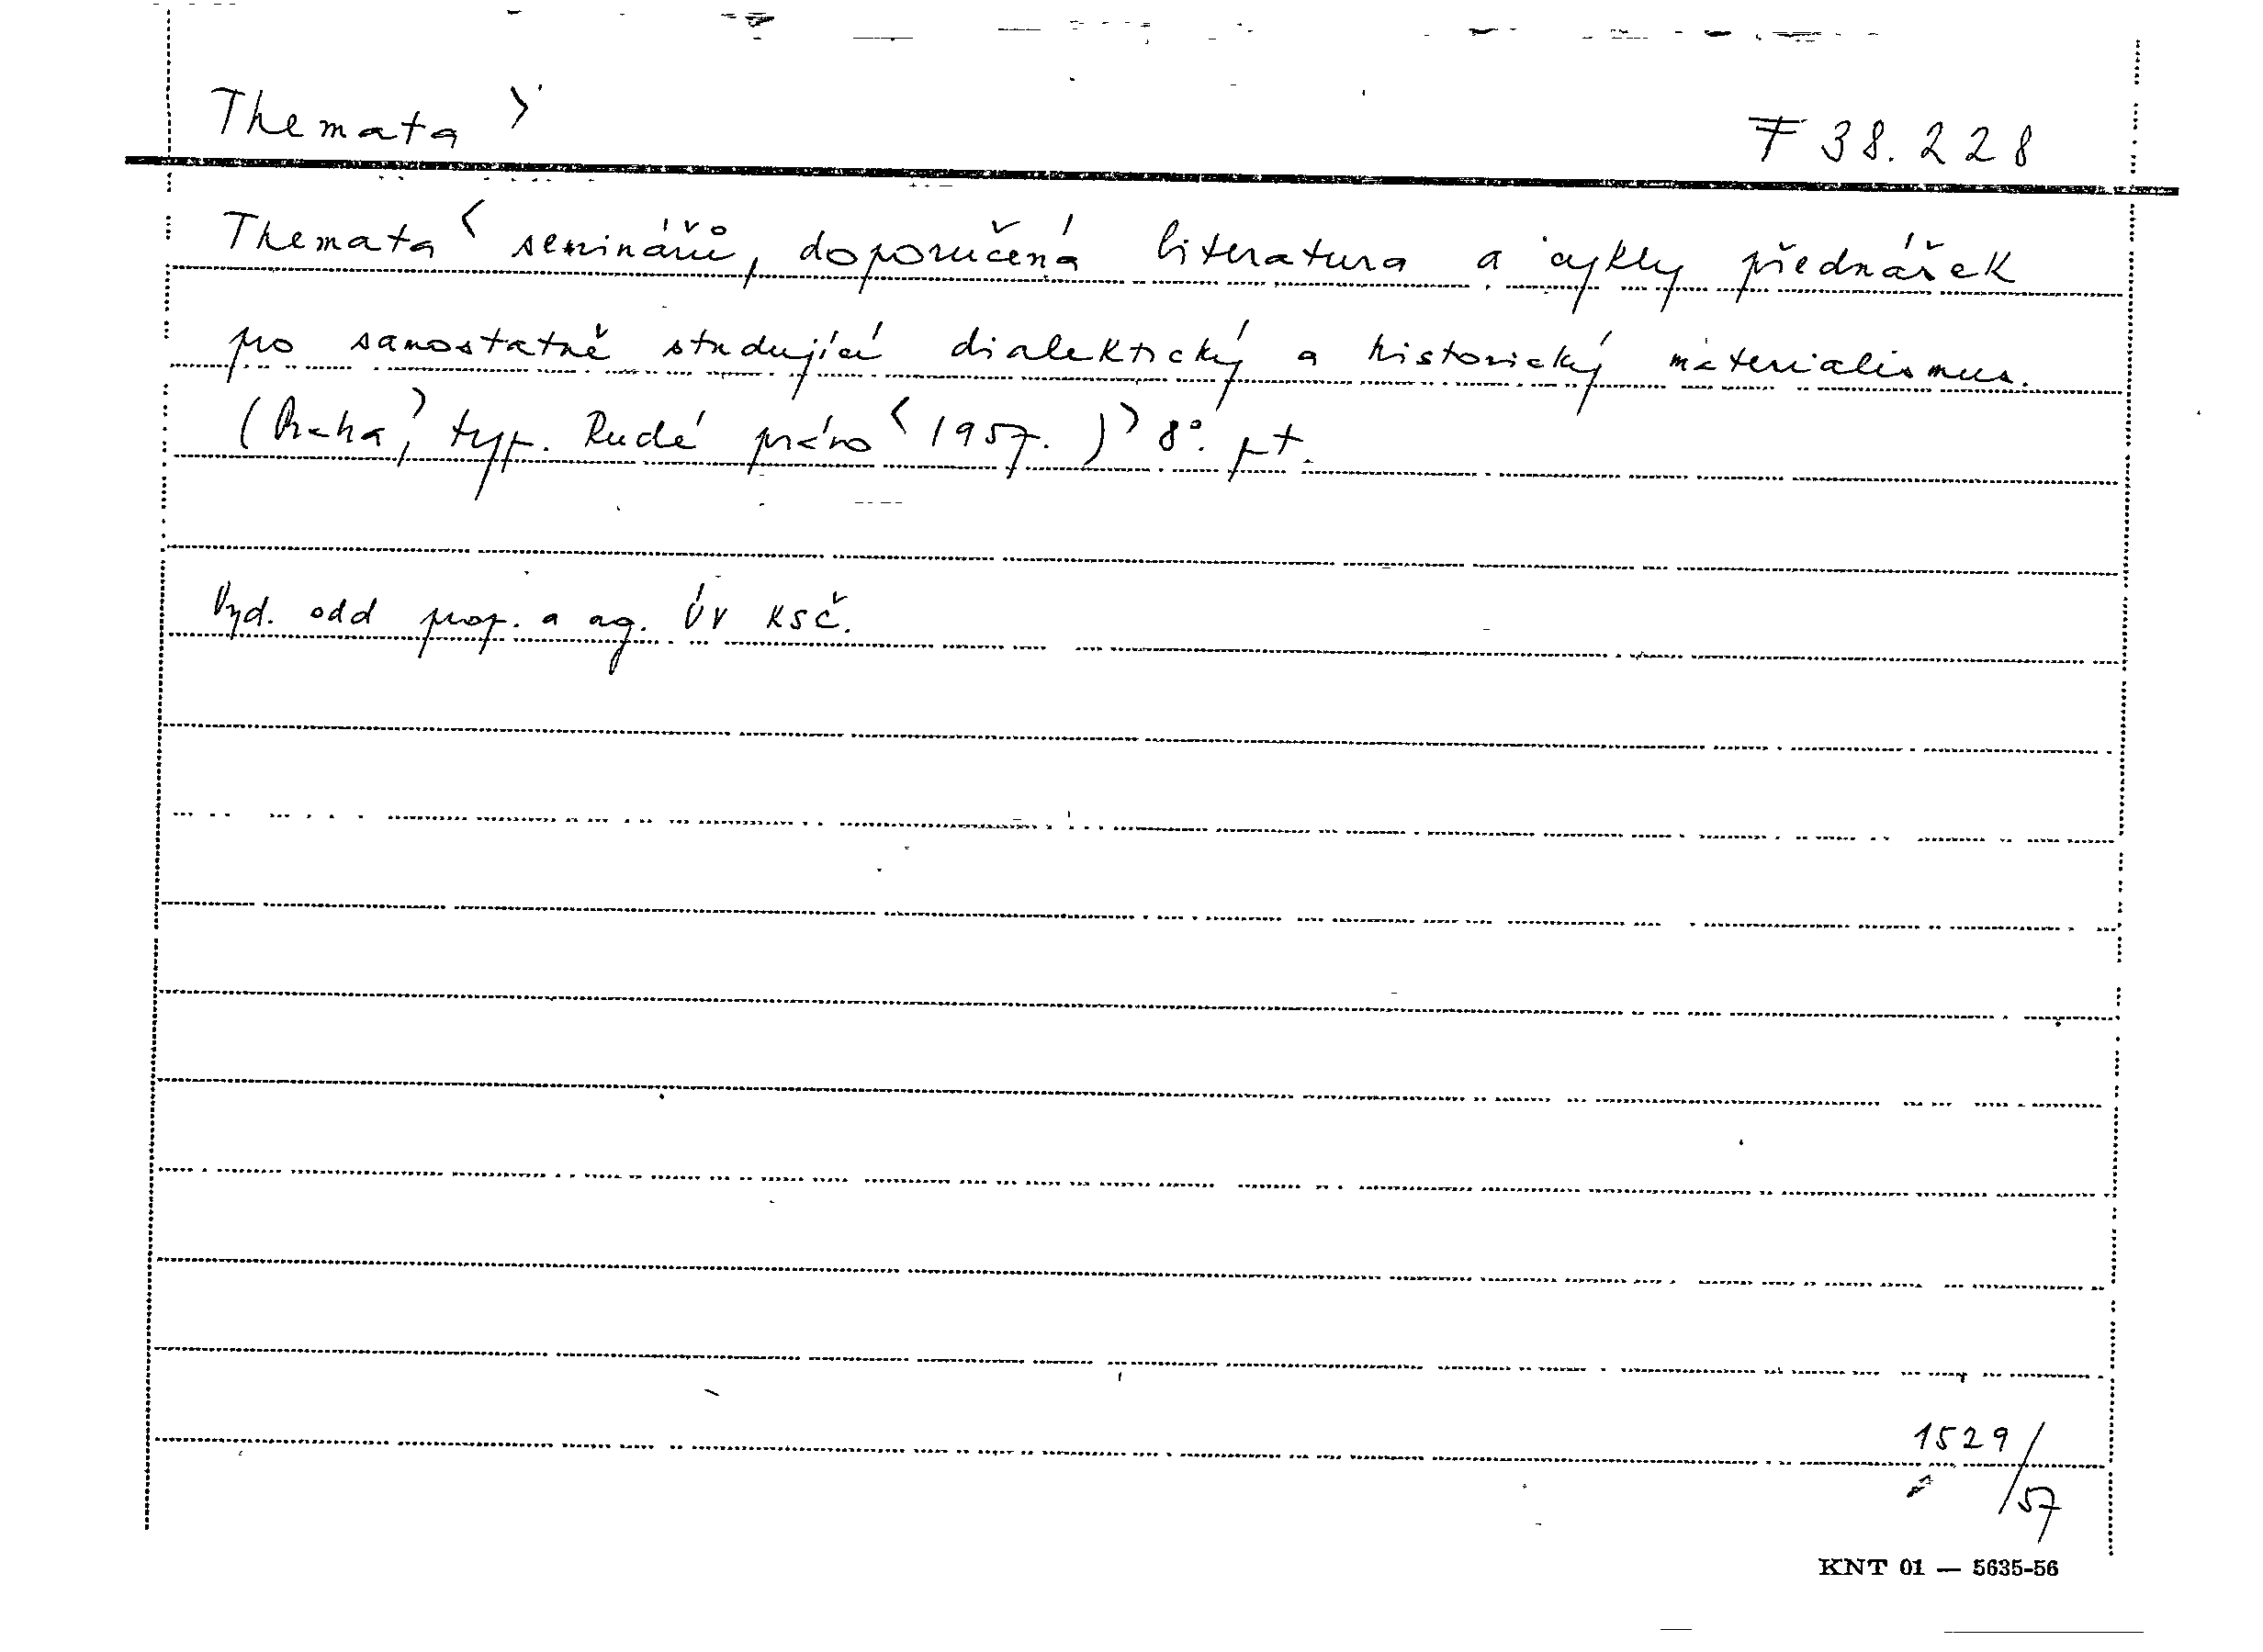 Themata >
F 38.228
Themata < seminářů, doporučená literatura a cykly přednášek
pro samostatně studující dialektický a historický materialismus.
(Praha,> typ. Rudé právo < 1957. )> 8°. pt.
Vyd. odd prop. a ag. ÚV KSČ.
1529/
57
KNT 01 — 5635-56